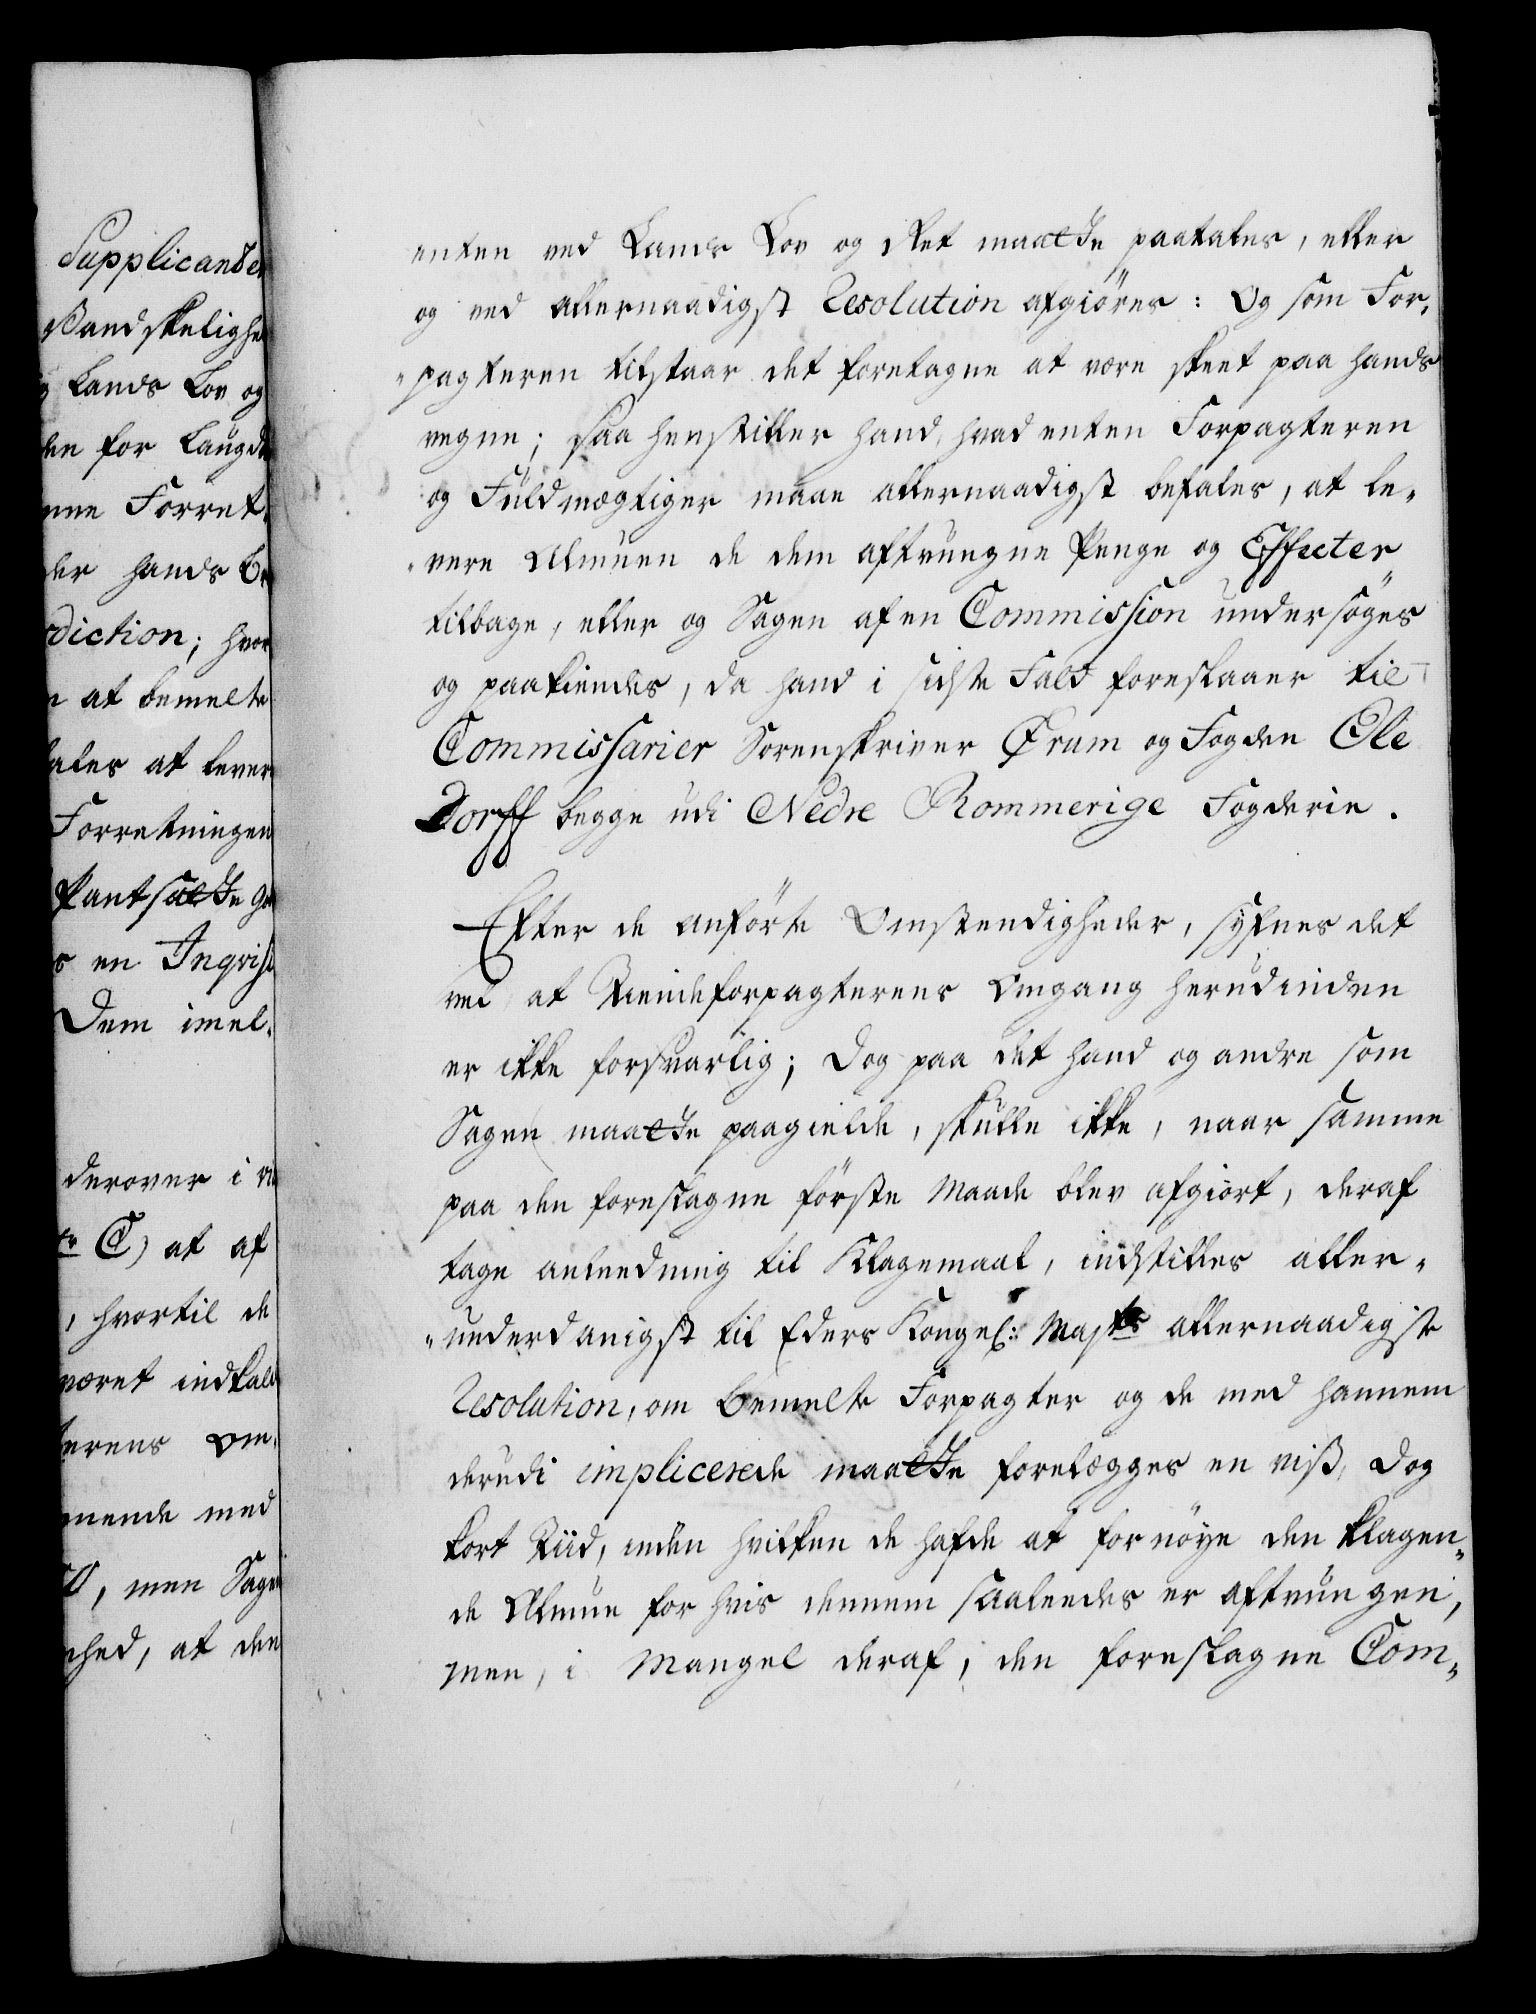 Supplicandē
Vandskelighed
g Lands Lov og
den for Laugda
nne Forret,
der hands Be
diction; hvor
n at bemelte
ales at lever
Forretningen
Pantsatte
s en Inqvisi
Dem imel,
derover i
C) at af
, hvortil de
været indkald
terens Om,
nende med
, men Sage
hed, at den
enten ved Lands Lov og Ret maatte paatales, eller
og ved allernaadigst Resolution afgiöres: Og som For,
"pagteren tilstaar det foretagne at være skeet paa hands
vegne; saa henstiller hand, hvad enten Forpagteren
og Fuldmægtiger maae allernaadigst befales, at le,
"vere Almuen de dem aftvungne Penge og Effecter
tilbage, eller og Sagen af en Commission undersöges
og paakiendes, da hand i sidste Fald foreslaaer til
Commissarier Sorenskriver Ørum og Fogden Ole
Dorff begge udi Nedre Rommerige Fogderie.
Efter de anförte Omstendigheder, syfnes det
vel at Tiendeforpagterens Omgang herudinden
er ikke forsvarlig; Dog paa det hand og andre som
Sagen maatte paagielde, skulle ikke, naar samme
paa den foreslagne förste Maade blev afgiort, deraf
tage anleedning til Klagemaal, indstilles aller,
"underdanigst til Eders Kongel: Majts allernaadigste
Resolution, om bemelte Forpagter og de med hannem
derudi implicerede maatte forelægges en viß, dog
kort Tiid, inden hvilken de hafde at fornöye den klagen,
de Almue for hvis dennem saaleedes er aftvungen,
men, i Mangel deraf, den foreslagne Com,